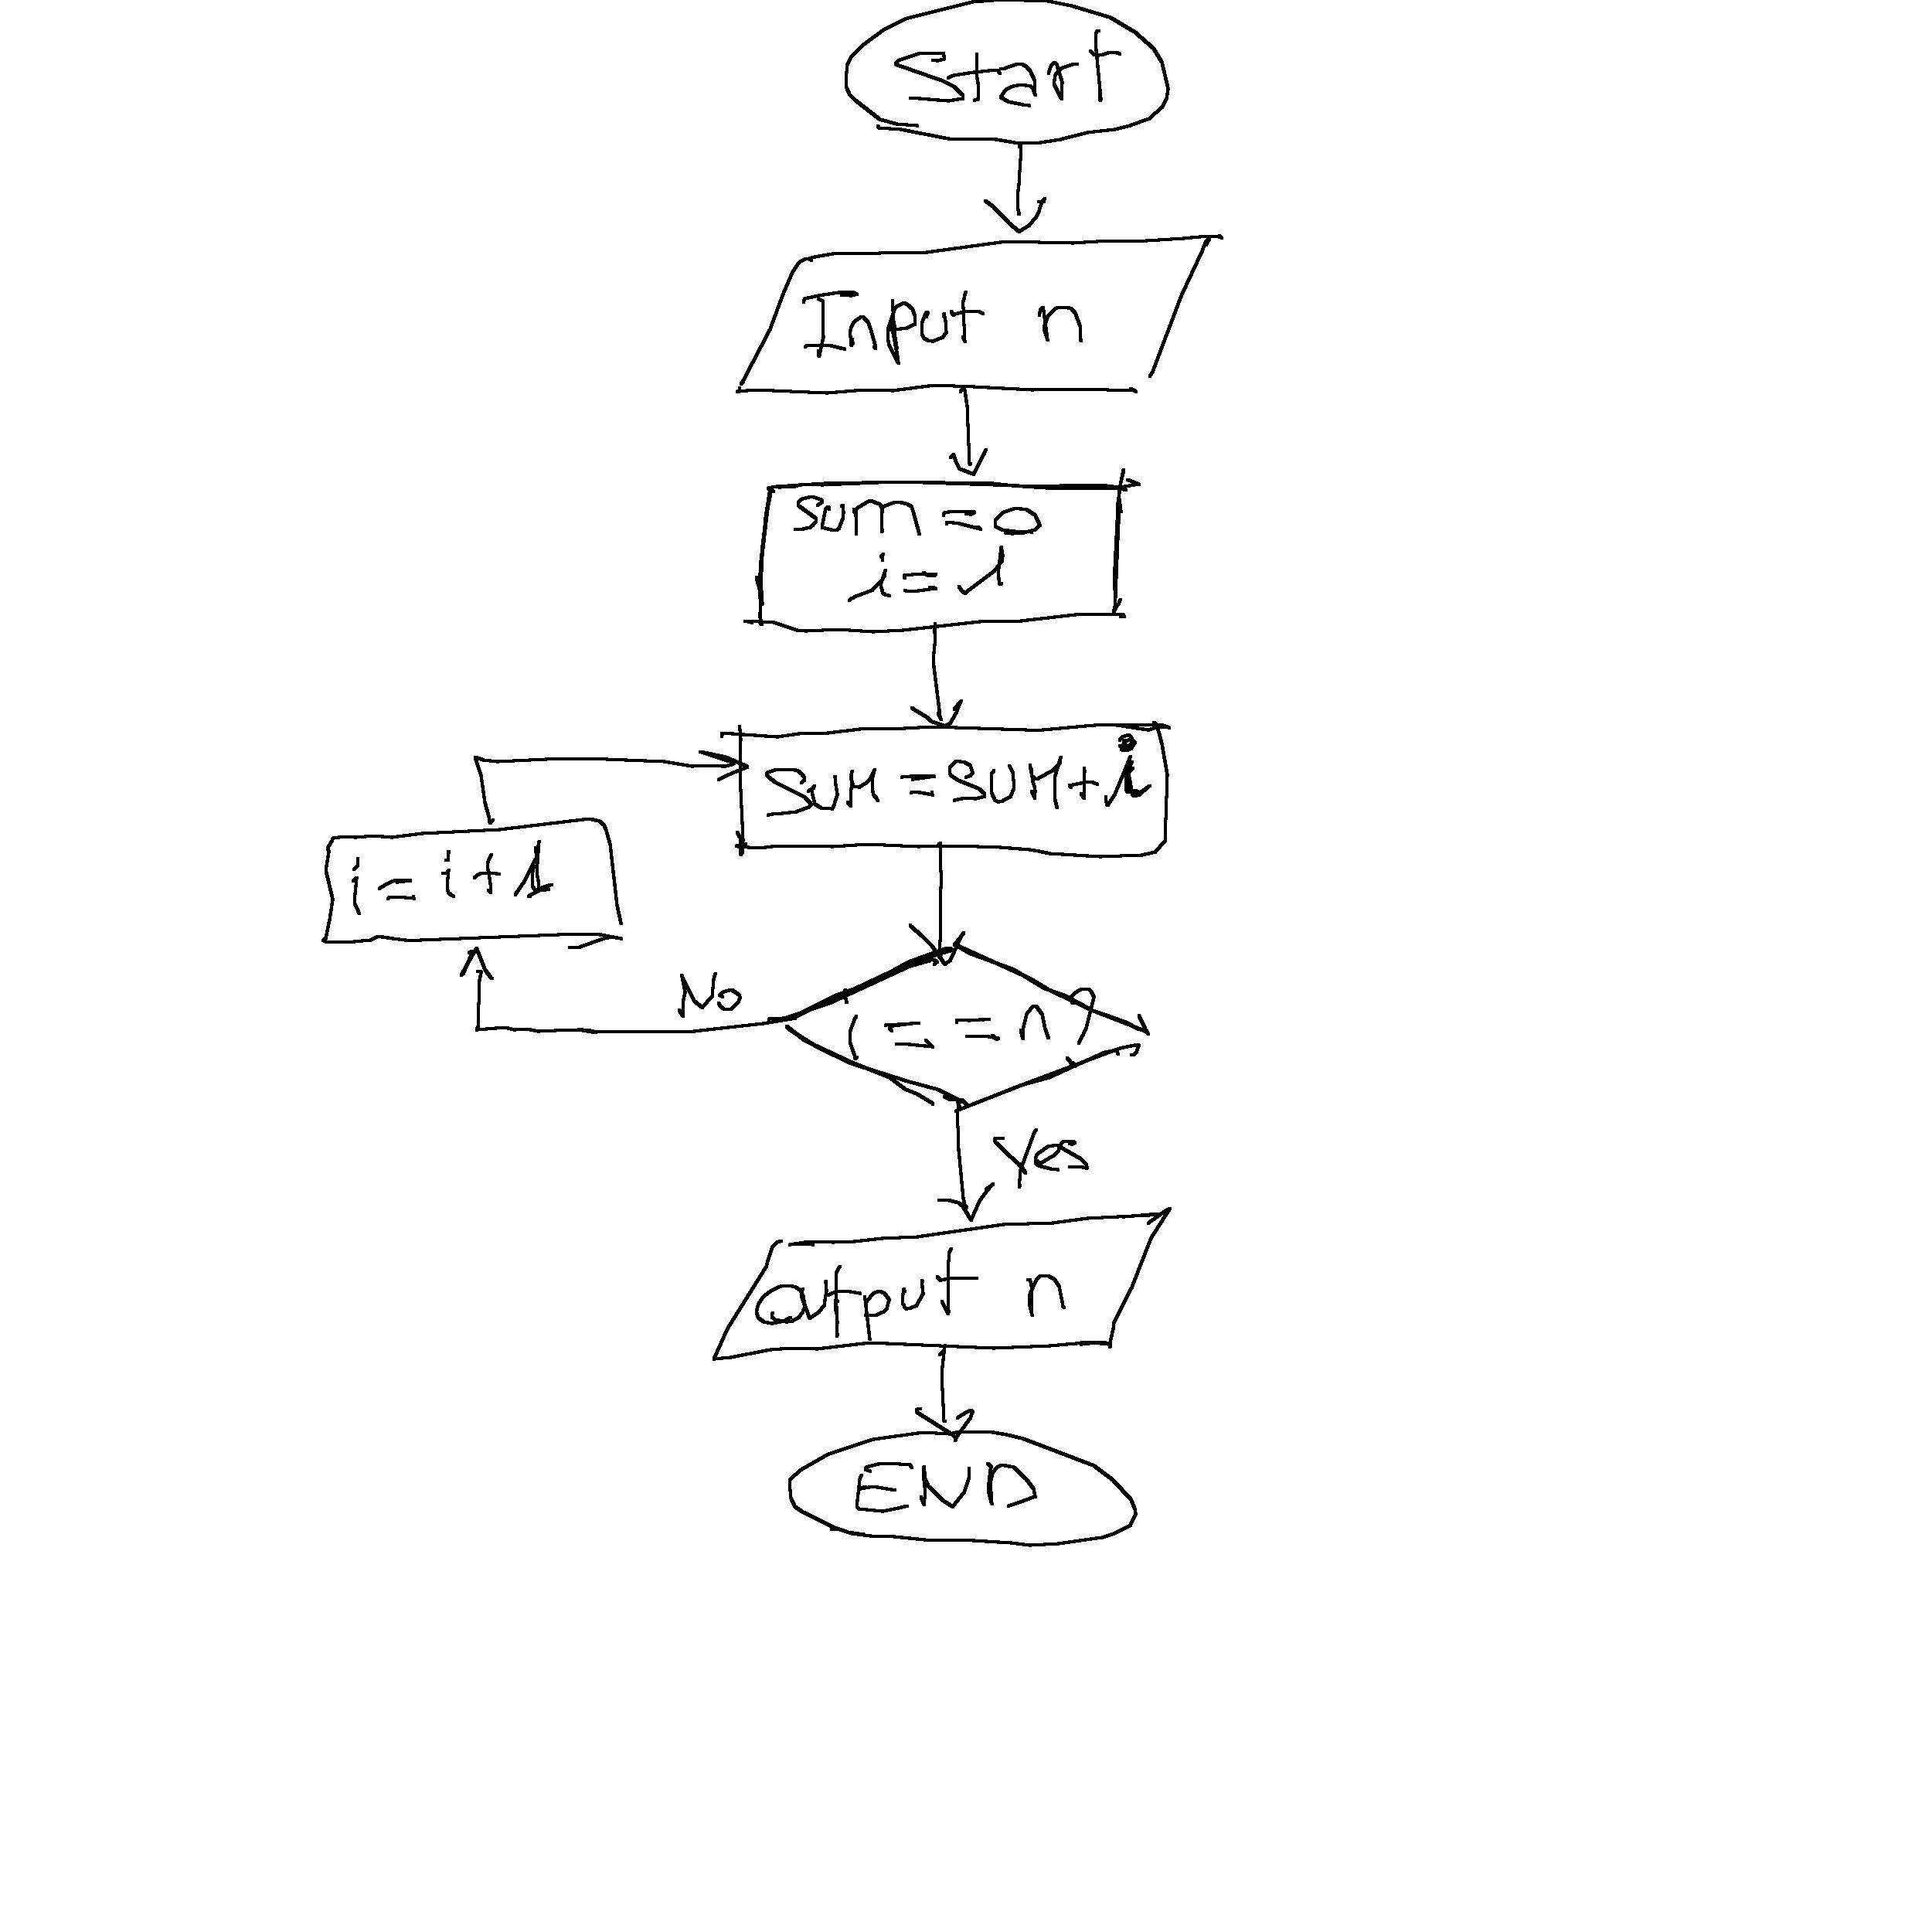 Start
Input n
sum = 0
i = 1
sum = sum + i
i = i + 1
No
i == n?
Yes
output n
END